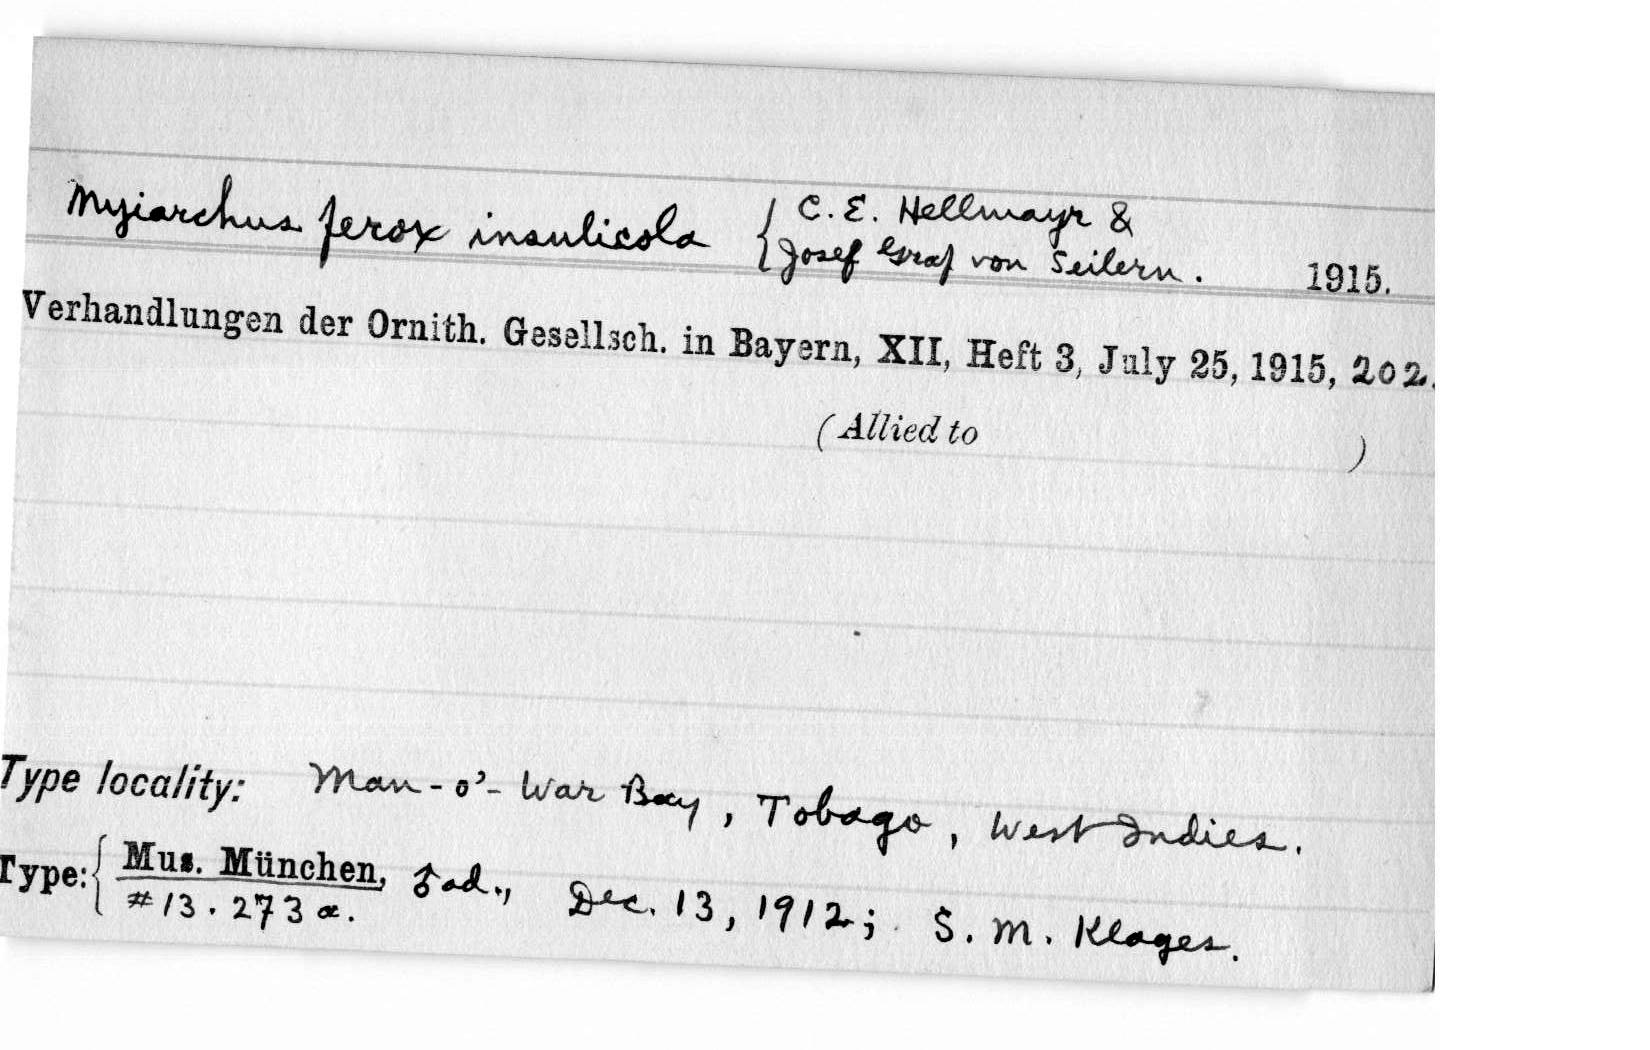 Myiarchus ferox insulicola { C. E. Hellmayr &
Josef Graf von Seilern. 1915.
Verhandlungen der Ornith. Gesellsch. in Bayern, XII, Heft 3, July 25, 1915, 202.
(Allied to )
Type locality: Man-o'-War Bay, Tobago, West Indies.
Type: { Mus. München, ♂ ad., Dec. 13, 1912; S. M. Klages.
#13.273a.